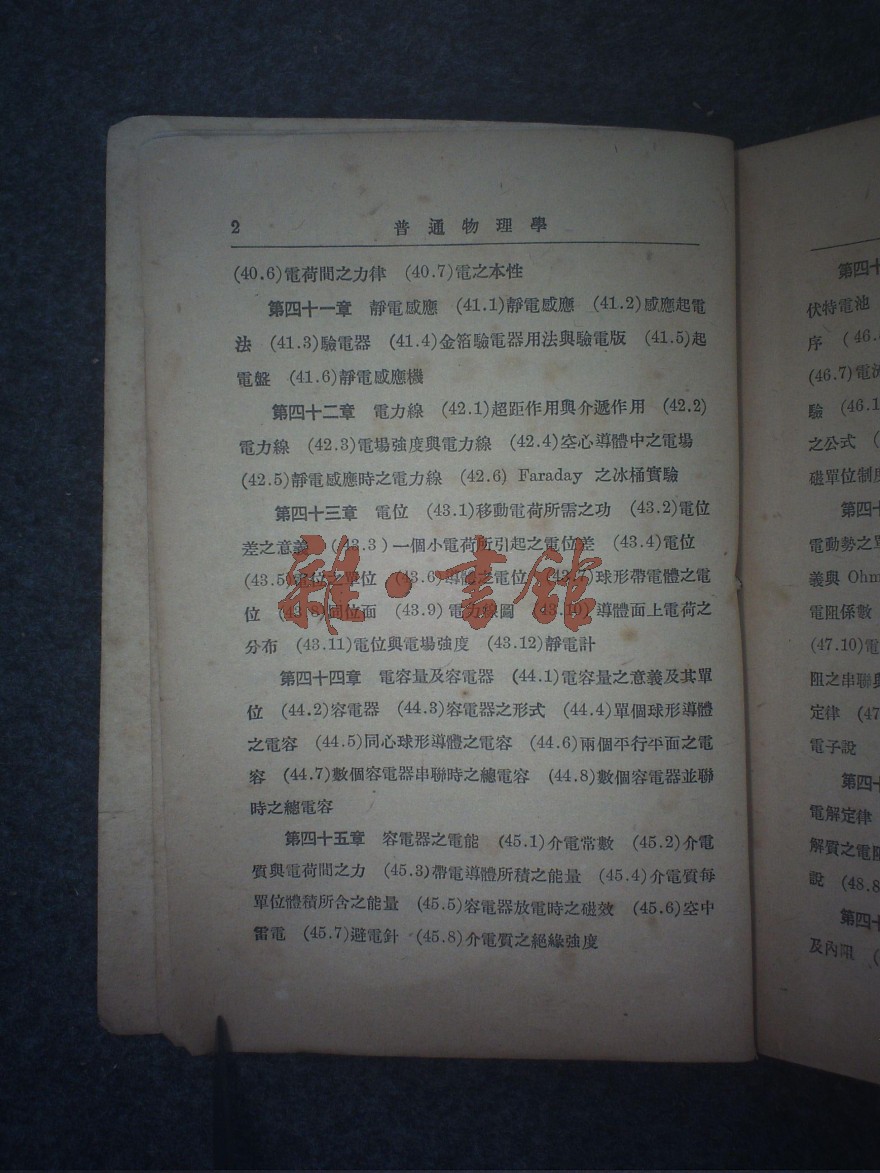 2 普通物理學
(40.6)電荷間之力律 (40.7)電之本性
第四十一章 靜電感應 (41.1)靜電感應 (41.2)感應起電
法 (41.3)驗電器 (41.4)金箔驗電器用法與驗電版 (41.5)起
電盤 (41.6)靜電感應機
第四十二章 電力線 (42.1)超距作用與介遞作用 (42.2)
電力線 (42.3)電場強度與電力線 (42.4)空心導體中之電場
(42.5)靜電感應時之電力線 (42.6) Faraday 之冰桶實驗
第四十三章 電位 (43.1)移動電荷所需之功 (43.2)電位
差之意義 (43.3)一個小電荷所引起之電位差 (43.4)電位
(43.5)電位之單位 (43.6)導體之電位 (43.7)球形帶電體之電
位 (43.8)同位面 (43.9)電力線圖 (43.10)導體面上電荷之
分布 (43.11)電位與電場強度 (43.12)靜電計
第四十四章 電容量及容電器 (44.1)電容量之意義及其單
位 (44.2)容電器 (44.3)容電器之形式 (44.4)單個球形導體
之電容 (44.5)同心球形導體之電容 (44.6)兩個平行平面之電
容 (44.7)數個容電器串聯時之總電容 (44.8)數個容電器並聯
時之總電容
第四十五章 容電器之電能 (45.1)介電常數 (45.2)介電
質與電荷間之力 (45.3)帶電導體所積之能量 (45.4)介電質每
單位體積所含之能量 (45.5)容電器放電時之磁效 (45.6)空中
雷電 (45.7)避電針 (45.8)介電質之絕緣強度
雜·書館
第四十
伏特電池
序 (46.
(46.7)電流
驗 (46.1
之公式 (
磁單位制度
第四十
電動勢之單
義與 Ohm
電阻係數
(47.10)電
阻之串聯與
定律 (47
電子說
第四十
電解定律
解質之電阻
說 (48.8
第四十
及內阻 (